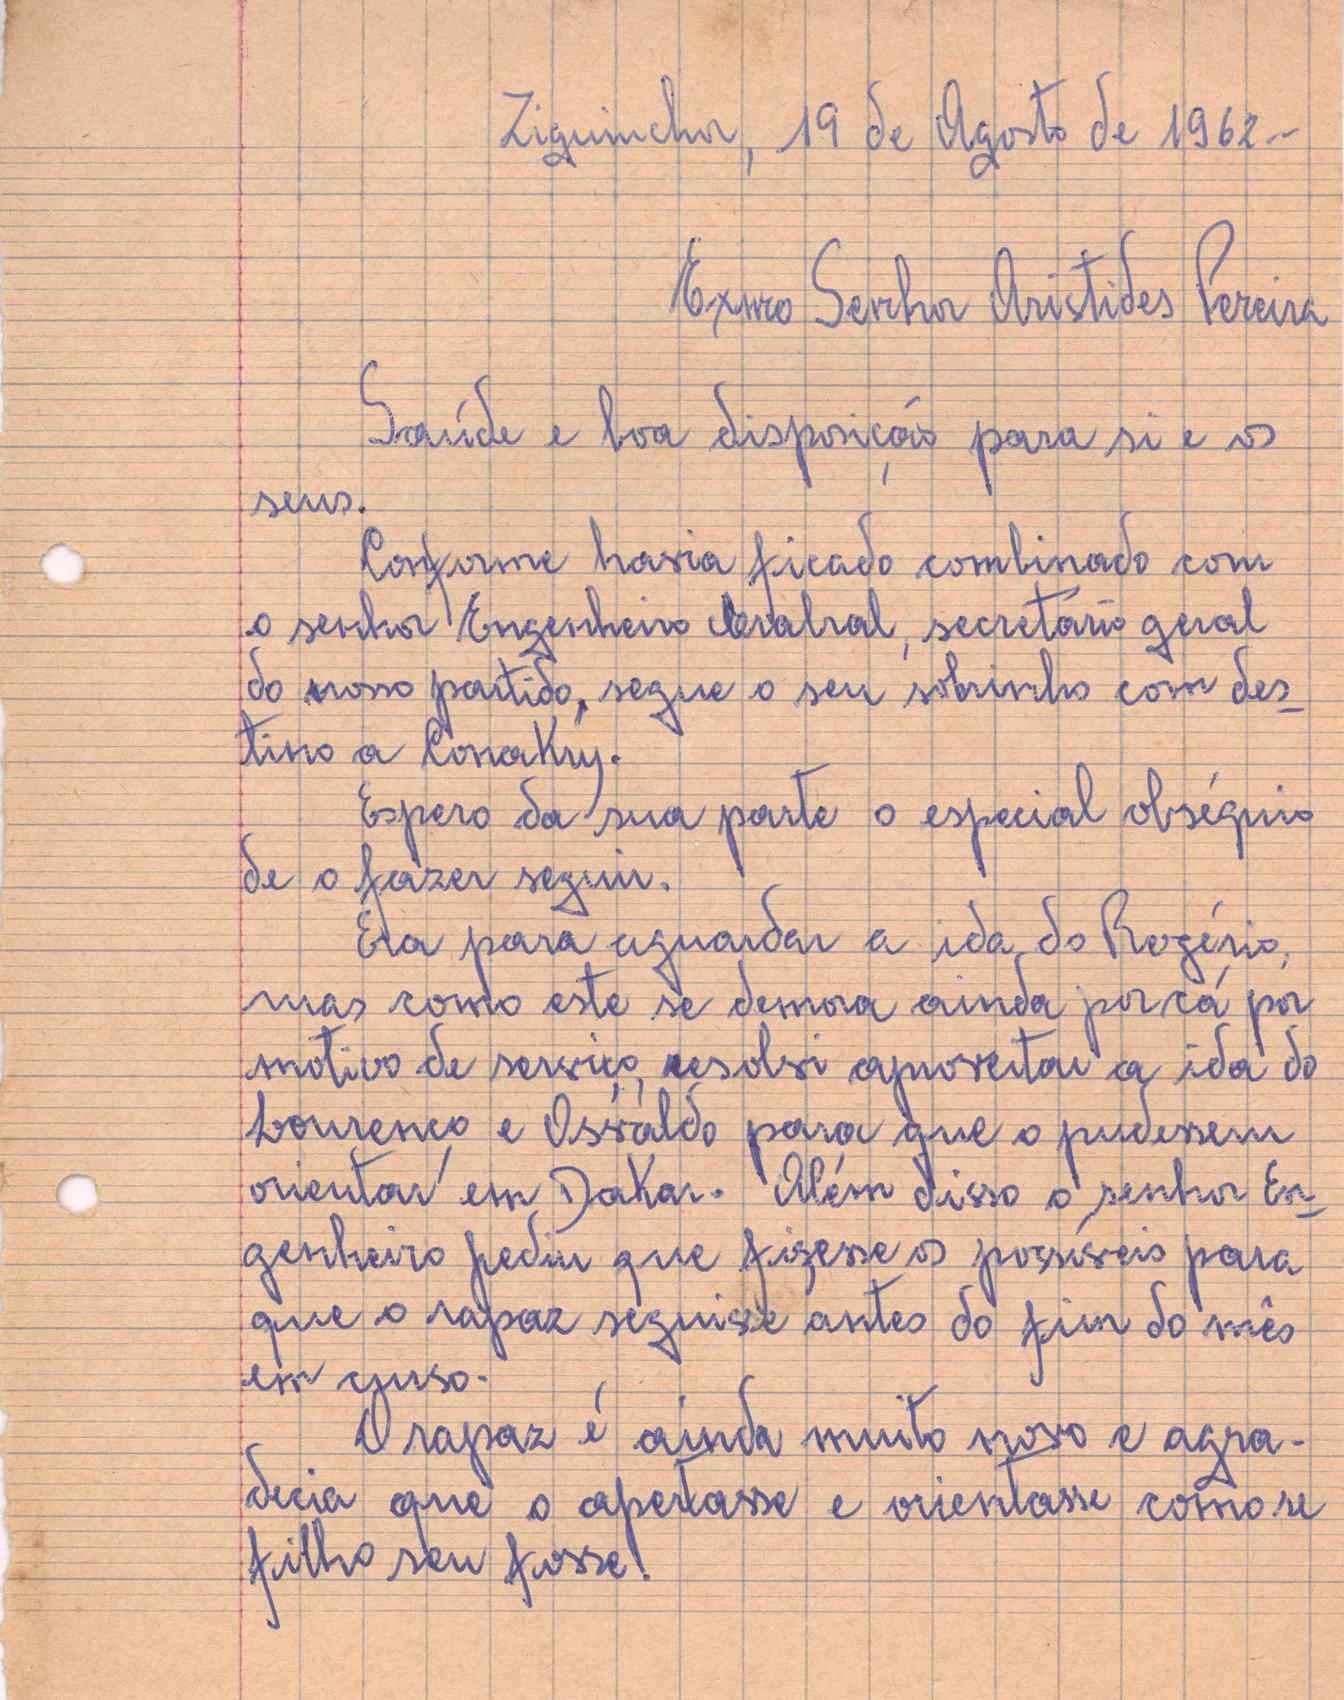 Ziguinchor, 19 de Agosto de 1962-
Exmo Senhor Aristides Pereira
Saúde e boa disposição para si e os
seus.
Conforme havia ficado combinado com
o senhor Engenheiro Cabral, secretário geral
do nosso partido, segue o seu sobrinho com des_
tino a Conakry.
Espero da sua parte o especial obséquio
de o fazer seguir.
Era para aguardar a ida do Rogério,
mas como este se demora ainda por cá por
motivo de serviço, resolvi aproveitar a ida do
Lourenço e Osvaldo para que o pudessem
orientar em Dakar. Além disso o senhor En_
genheiro pediu que fizesse os possíveis para
que o rapaz seguisse antes do fim do mês
em curso.
O rapaz é ainda muito novo e agra-
decia que o apertasse e orientasse como se
filho seu fosse.